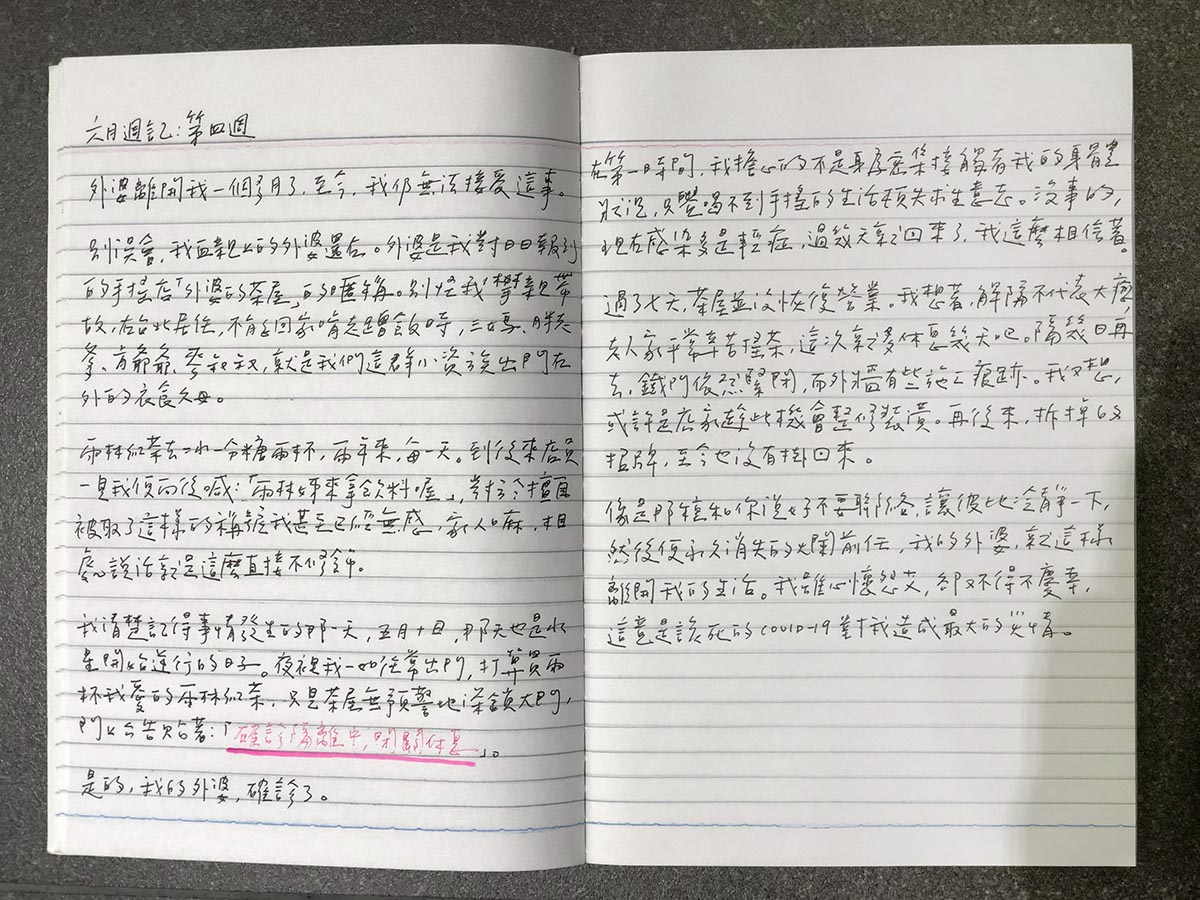 六月週記：第四週
外婆離開我一個多月了，至今，我仍無法接受這事。
別誤會，我血親上的外婆還在。外婆是我對日日報到
的手搖店「外婆的茶屋」的暱稱。別怪我攀親帶
故，在台北居住，不能回家啃老蹭飯時，三媽、胖
爹、肯爺爺、麥叔叔，就是我們這群小資族出門在
外的衣食父母。
雨林紅茶去冰一分糖兩杯，兩年來，每一天。到後來店員
一見我便向後喊：「雨林姊來拿飲料喔」，對於擅自
被取了這樣的稱號我甚至已經無感，家人嘛，相
處說話就是這麼直接不修飾。
我清楚記得事情發生的那一天，五月十日，那天也是水
星開始逆行的日子。夜裡我一如往常出門，打算買兩
杯我愛的雨林紅茶，只是茶屋無預警地深鎖大門，
門上公告貼著：「確診隔離中，閉關休息」。
是的，我的外婆，確診了。
在第一時間，我擔心的不是身為密集接觸者我的身體
狀況，只覺喝不到手搖的生活頓失求生意志。沒事的，
現在感染多是輕症，過幾天就回來了，我這麼相信著。
過了七天，茶屋並沒恢復營業。我想著，解隔不代表大癒，
老人家平常辛苦搖茶，這次就多休息幾天吧。隔幾日再
去，鐵門依然緊閉，而外牆有些施工痕跡。我又想，
或許是店家趁此機會整修裝潢。再後來，拆掉的
招牌，至今也沒有掛回來。
像是那種和你說好不要聯絡，讓彼此冷靜一下，
然後便永久消失的爛前任，我的外婆，就這樣
離開我的生活。我雖心懷怨艾，卻又不得不慶幸，
這竟是該死的COVID-19對我造成最大的災情。